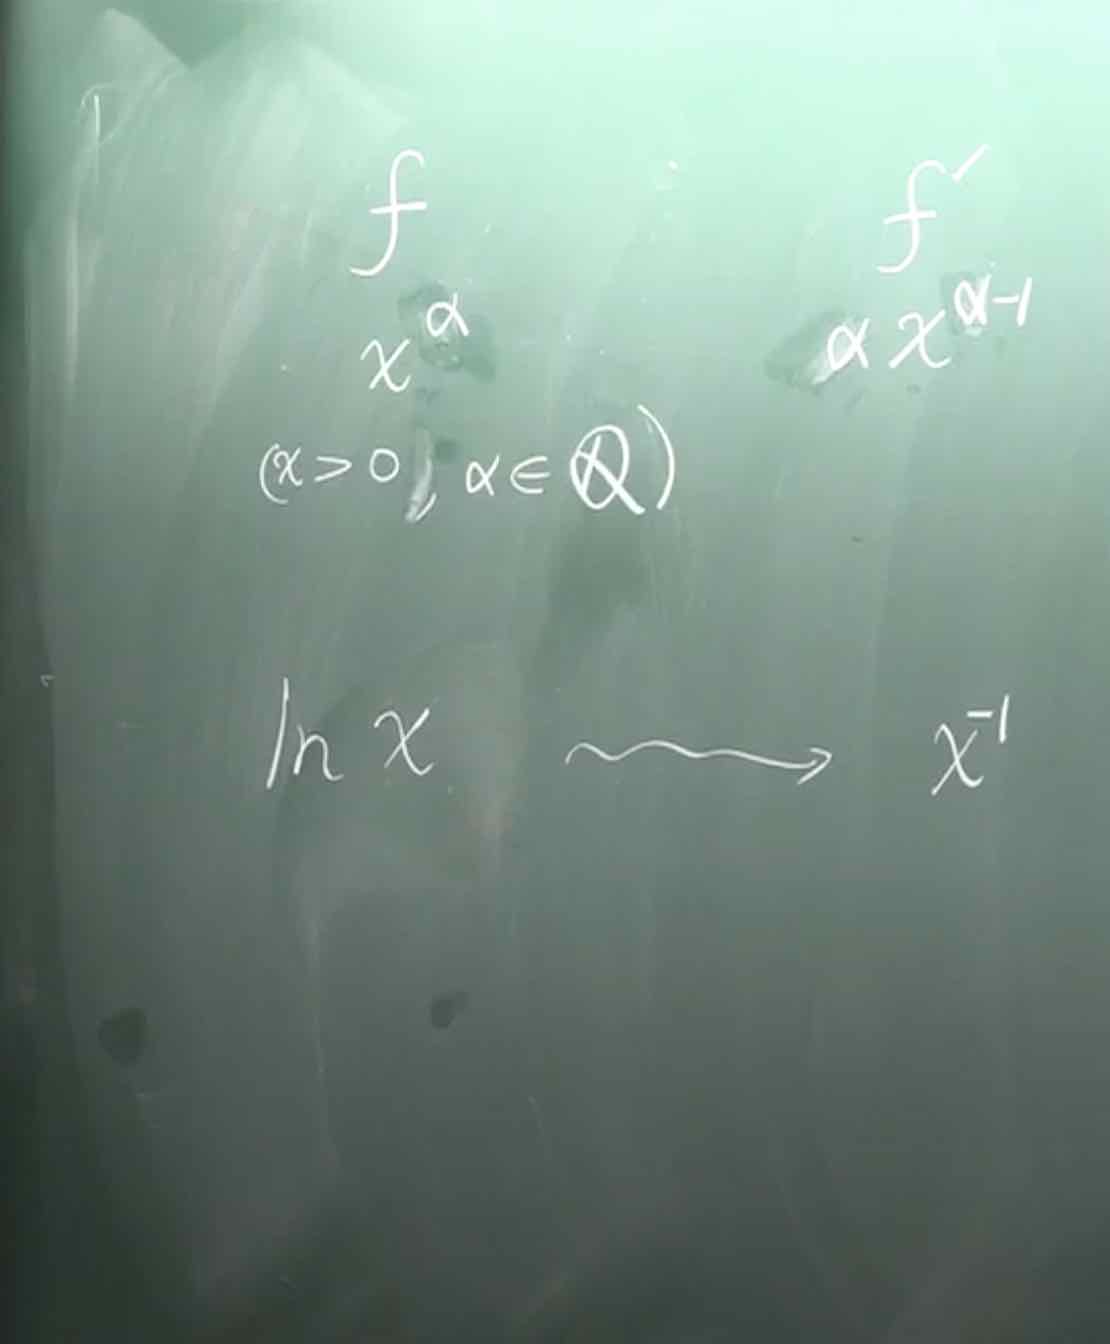 f f′
x^α αx^(α-1)
(x>0, α∈ℚ)
ln x ⟿ x^-1